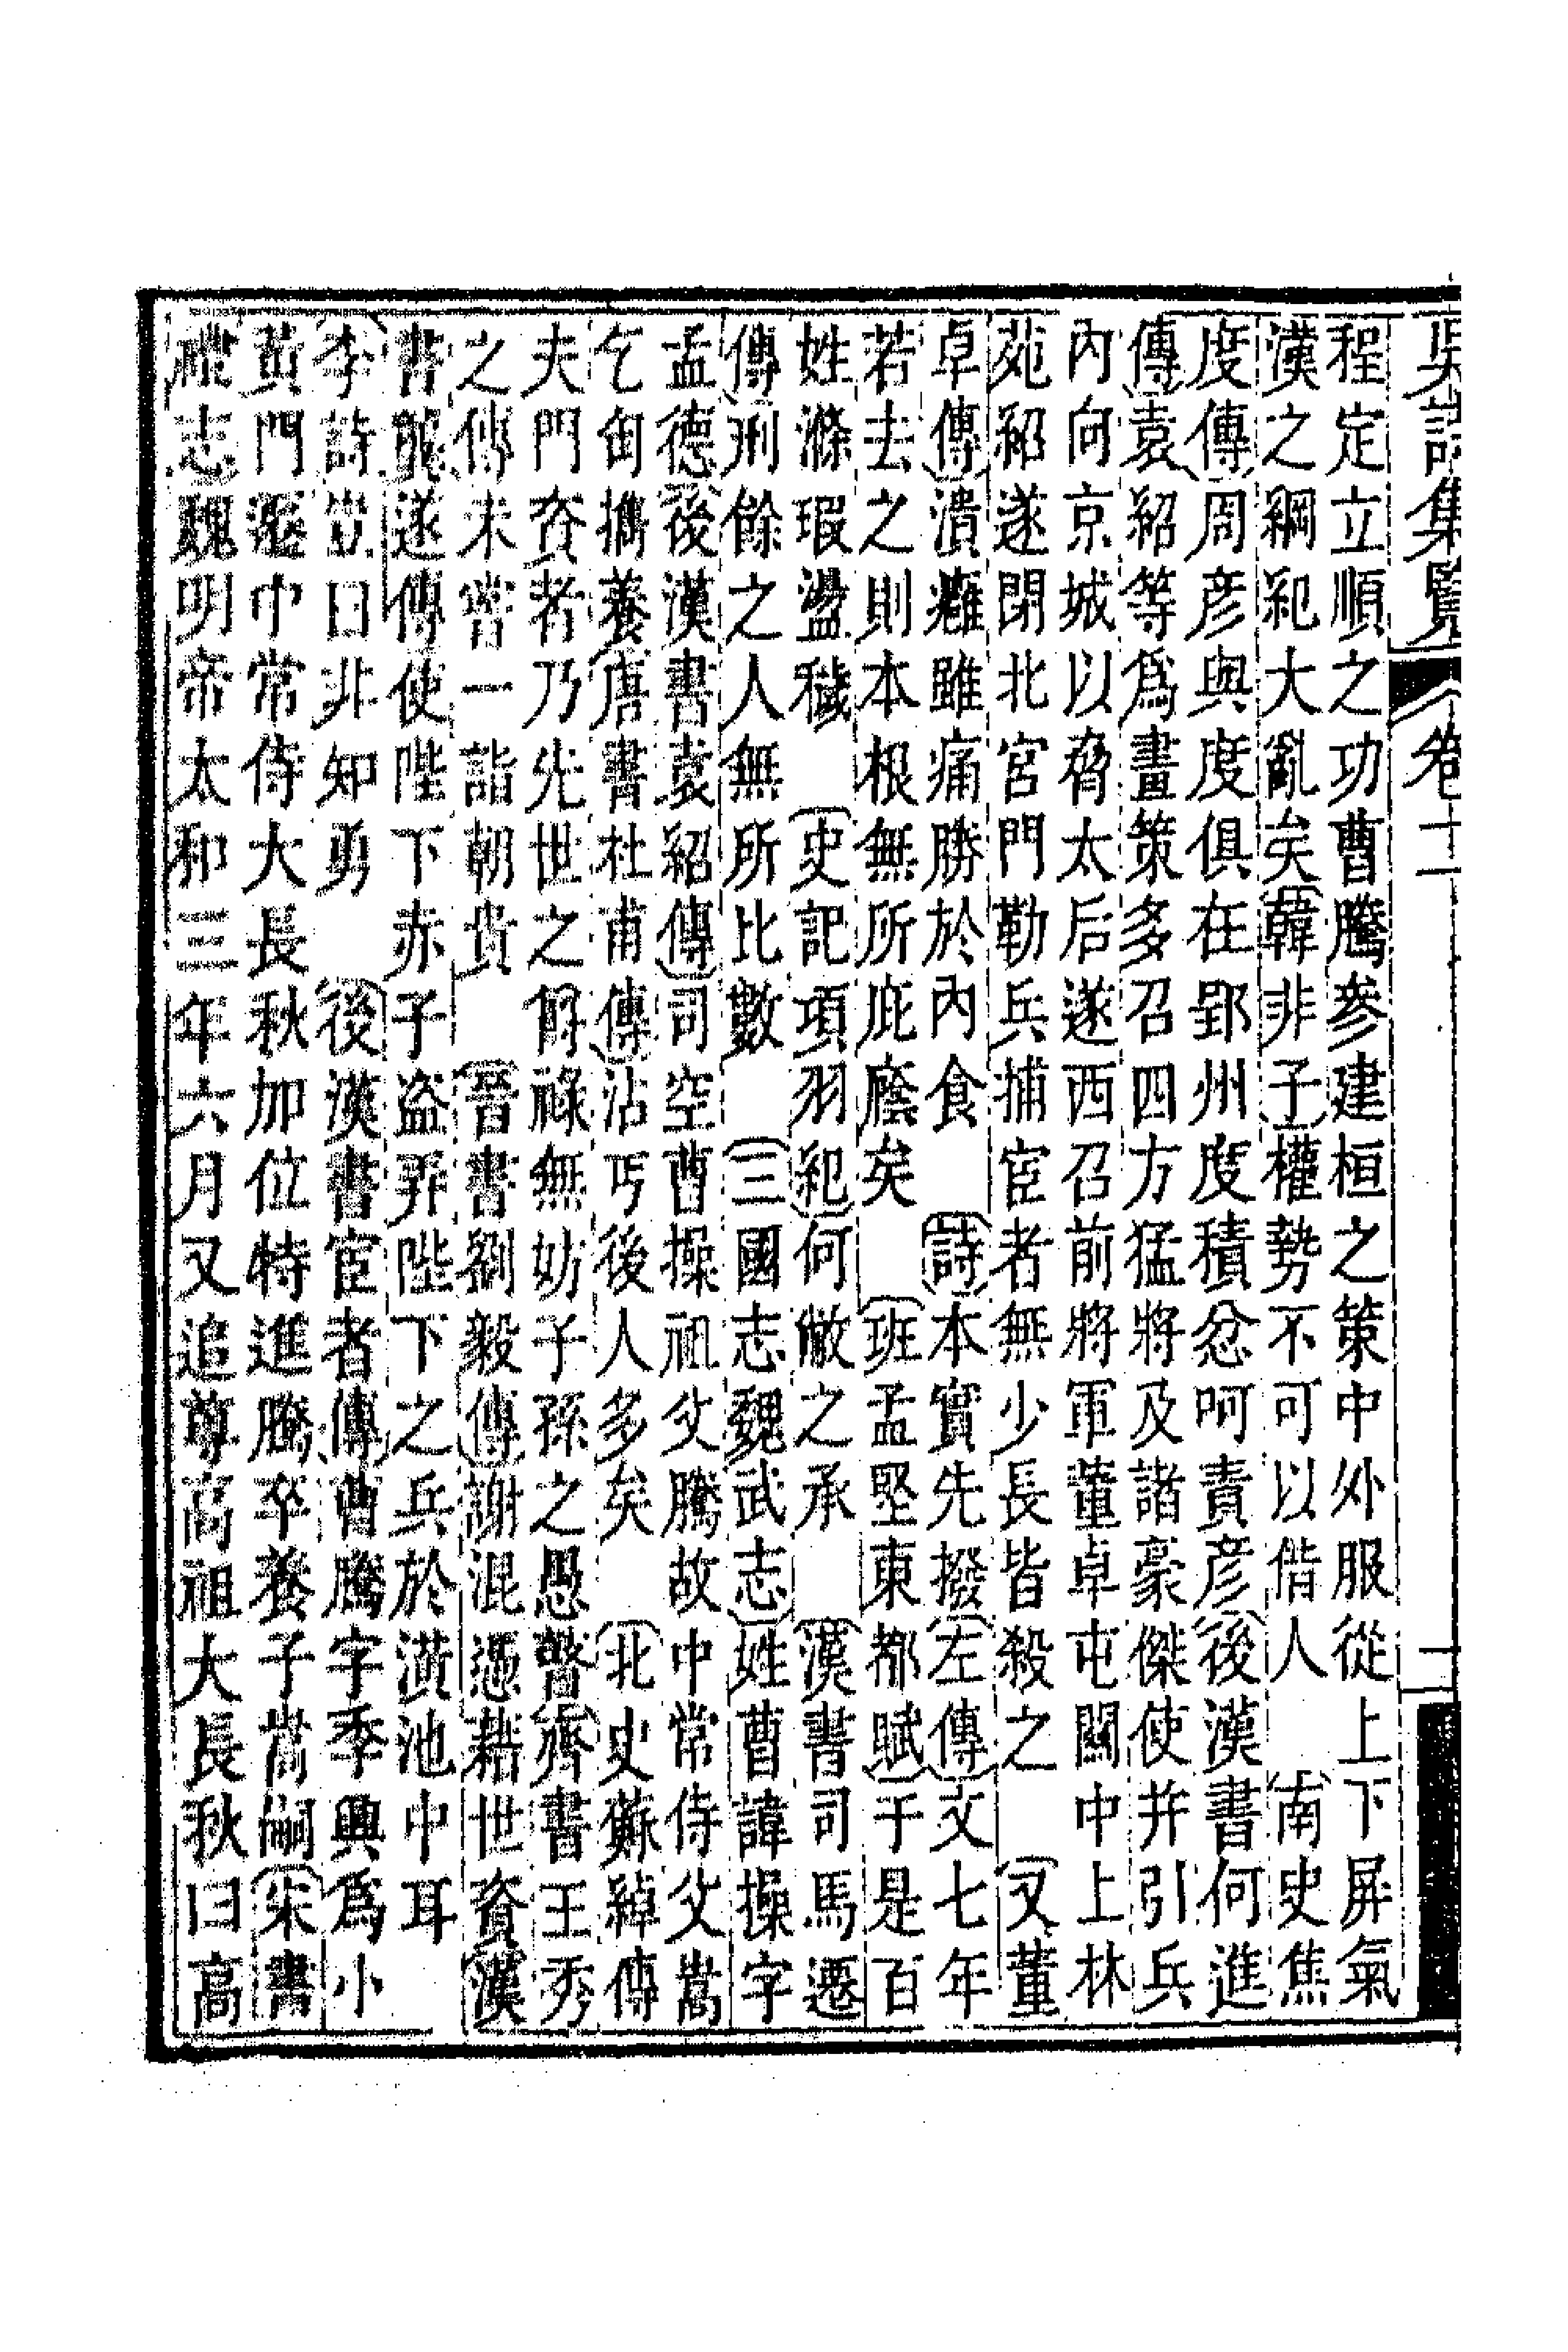 吳詩集覽 卷十一 二
程定立順之功曹騰參建桓之策中外服從上下屏氣
漢之綱紀大亂矣 韓非子權勢不可以偕人 南史焦
度傳周彥與度俱在郢州度積忿呵責彥 後漢書何進
傳袁紹等為畫策多召四方猛將及諸豪傑使并引兵
內向京城以脅太后遂西召前將軍董卓屯關中上林
苑紹遂閉北宮門勒兵捕宦者無少長皆殺之 又董
卓傳潰癰雖痛勝於內食 詩本實先撥 左傳文七年
若去之則本根無所庇廕矣 班孟堅東都賦于是百
姓滌瑕盪穢 史記項羽紀何慚之承 漢書司馬遷
傳刑餘之人無所比數 三國志魏武志姓曹諱操字
孟德 後漢書袁紹傳司空曹操祖父騰故中常侍父嵩
乞匄攜養 唐書杜甫傳沾丐後人多矣 北史蘇綽傳
夫門資者乃先世之爵祿無妨子孫之愚瞽 齊書王秀
之傳未嘗一詣朝貴 晉書劉毅傳謝混憑藉世資 漢
書龔遂傳使陛下赤子盜弄陛下之兵於潢池中耳
李詩豈曰非知勇 後漢書宦者傳曹騰字季興為小
黃門遷中常侍大長秋加位特進騰卒養子嵩嗣 宋書
禮志魏明帝太和三年六月又追尊高祖大長秋曰高